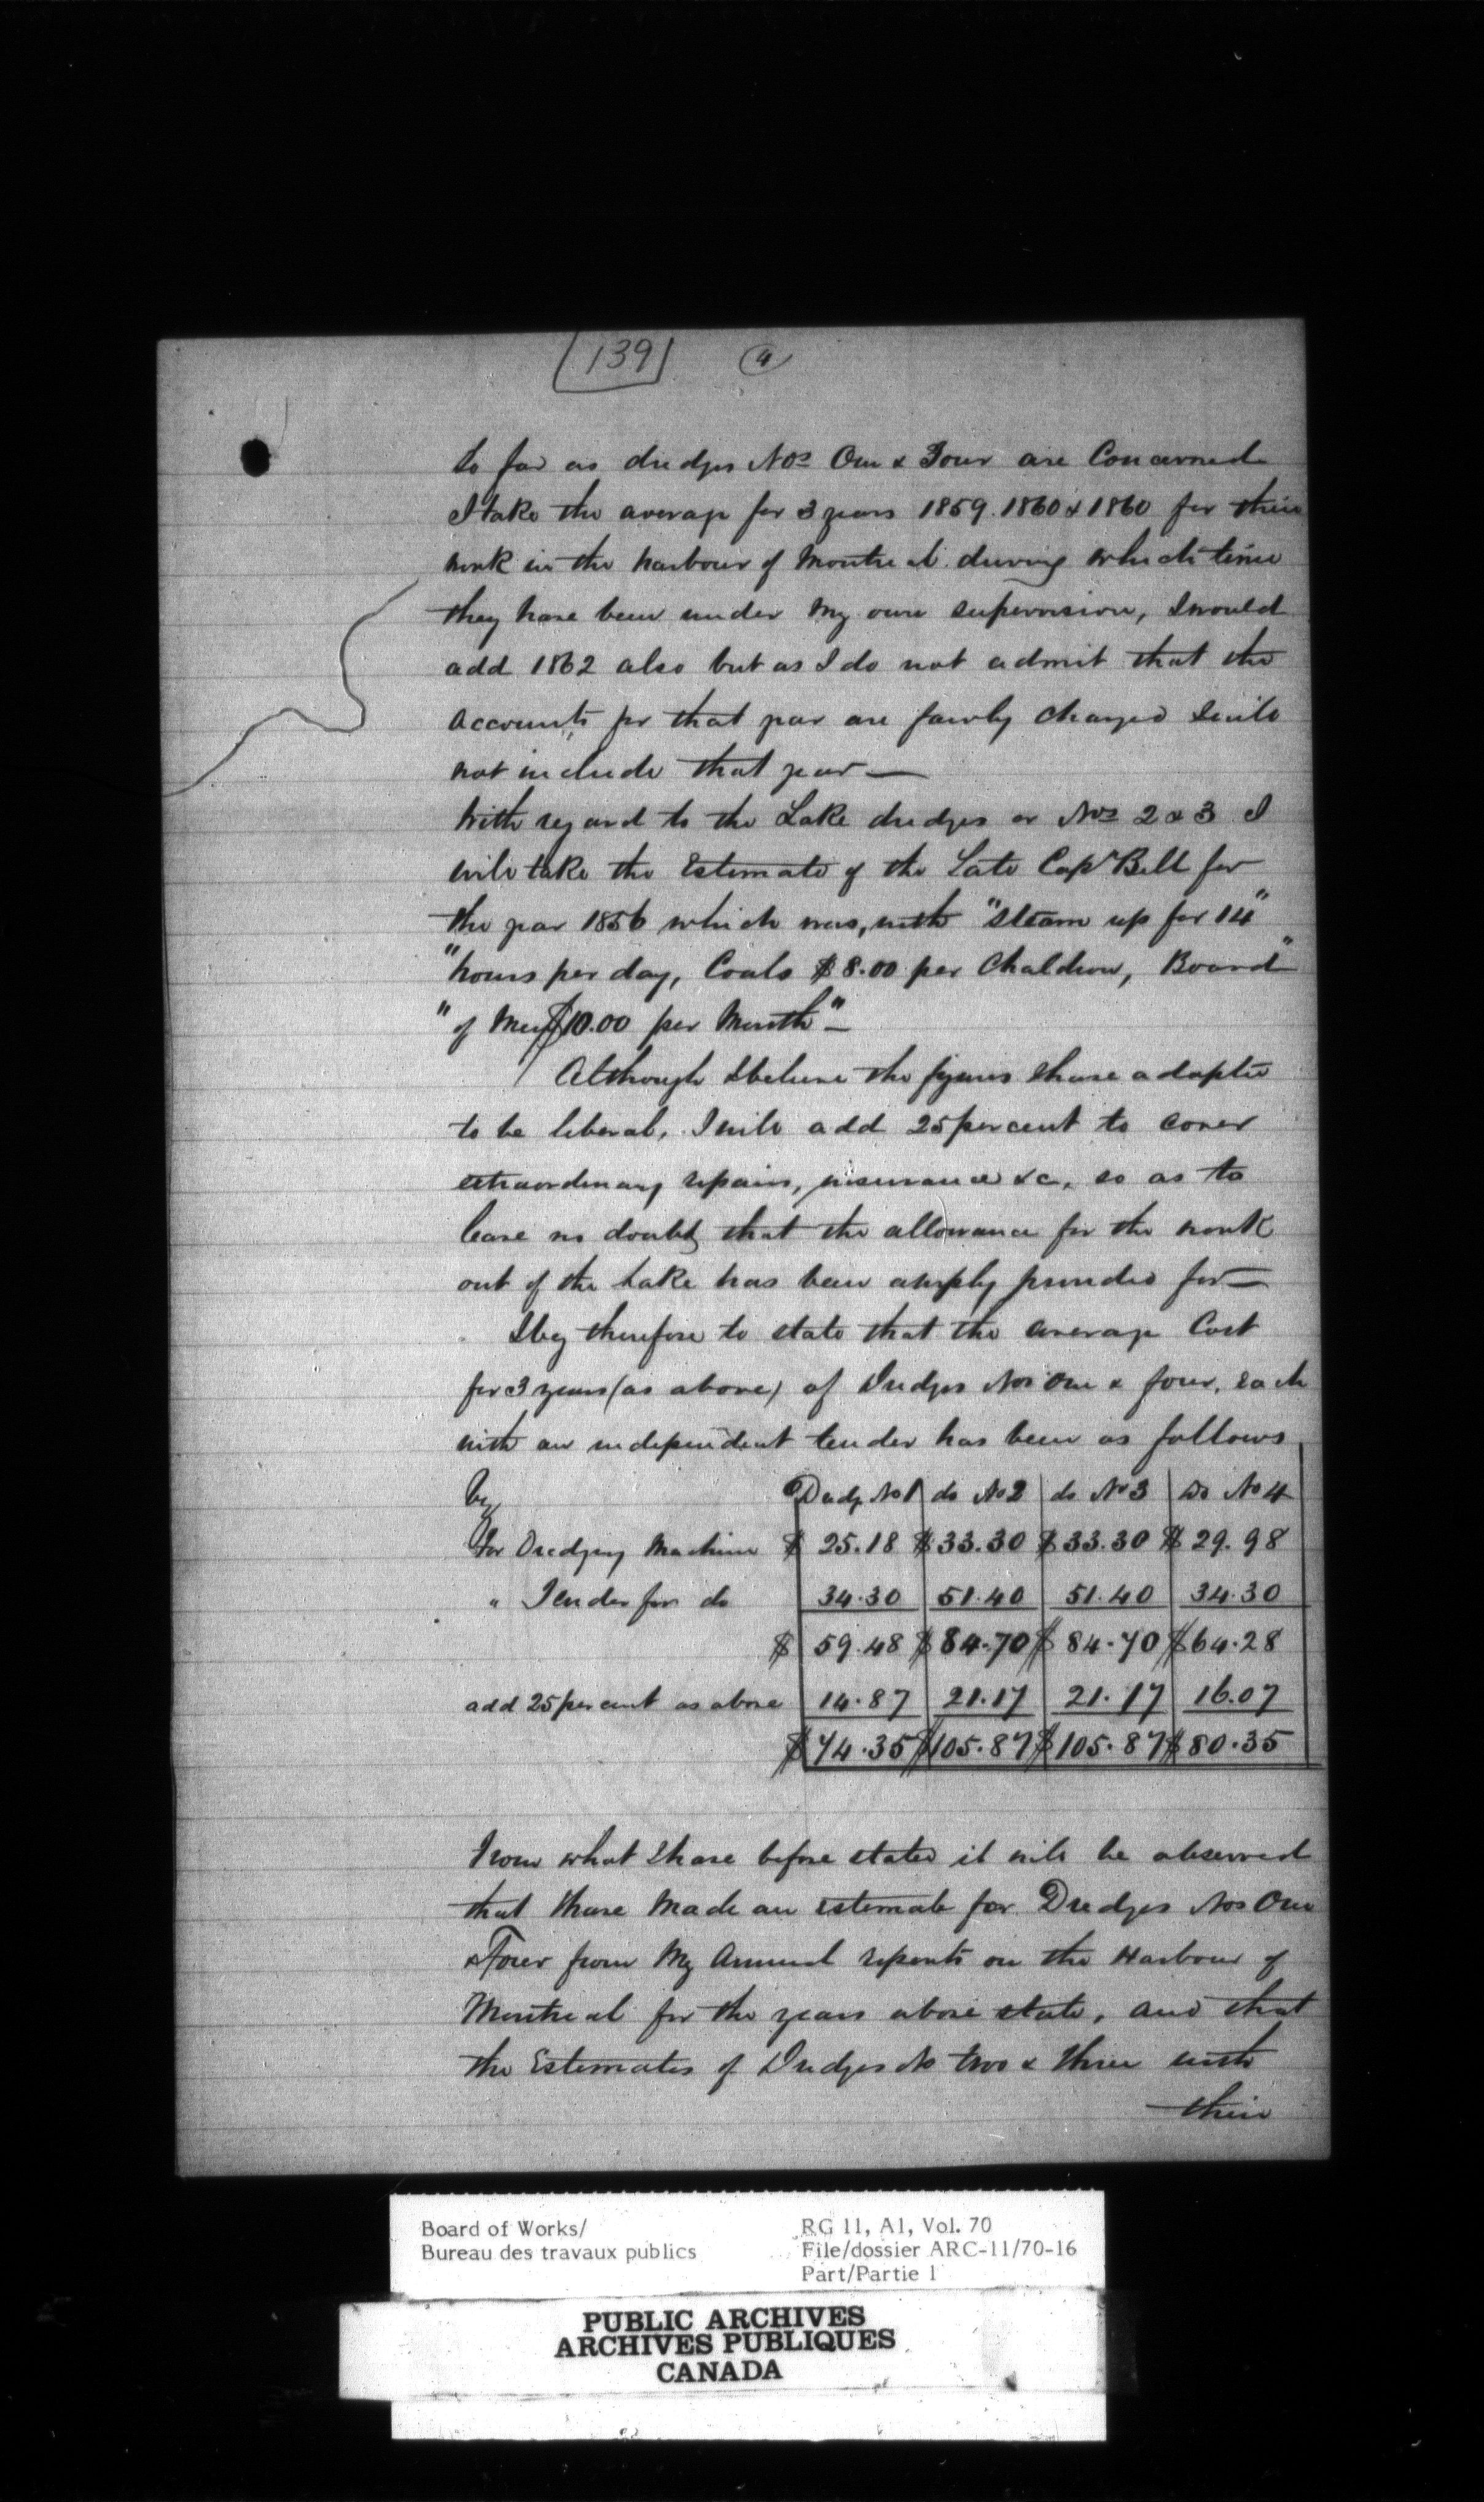 139 4
So far as dredges Nos One & Four are Concerned
I take the average for 3 years 1859. 1860 & 1860 for their
work in the harbour of Montreal during which time
they have been under my own supervision, I would
add 1862 also but as I do not admit that the
accounts for that year are fairly charged I will
not include that year —
With regard to the Lake dredges or Nos 2 & 3 I
will take the Estimate of the Late Capt Bell for
the year 1856 which was, with "steam up for 14"
"hours per day, Coals $8.00 per Chaldron, Board"
"of Men $10.00 per Month" —
Although I believe the figures I have adopted
to be liberal, I will add 25 per cent to cover
extraordinary repairs, insurance &c, so as to
leave no doubt that the allowance for the work
out of the Lake has been amply provided for —
I beg therefore to state that the average Cost
for 3 years (as above) of Dredges Nos One & four, each
with an independent tender has been as follows
Dredge No 1 do No 2 do No 3 Do No 4
For Dredging Machine $ 25.18 $ 33.30 $ 33.30 $ 29.98
" Tender for do 34.30 51.40 51.40 34.30
$ 59.48 $ 84.70 $ 84.70 $ 64.28
add 25 per cent as above 14.87 21.17 21.17 16.07
$ 74.35 $ 105.87 $ 105.87 $ 80.35
From what I have before stated it will be observed
that I have Made an estimate for Dredges Nos One
& Four from My Annual reports on the Harbour of
Montreal for the years above state, and that
the Estimates of Dredges No two & three with
their
Board of Works/
Bureau des travaux publics
RG 11, A1, Vol. 70
File/dossier ARC-11/70-16
Part/Partie 1
PUBLIC ARCHIVES
ARCHIVES PUBLIQUES
CANADA